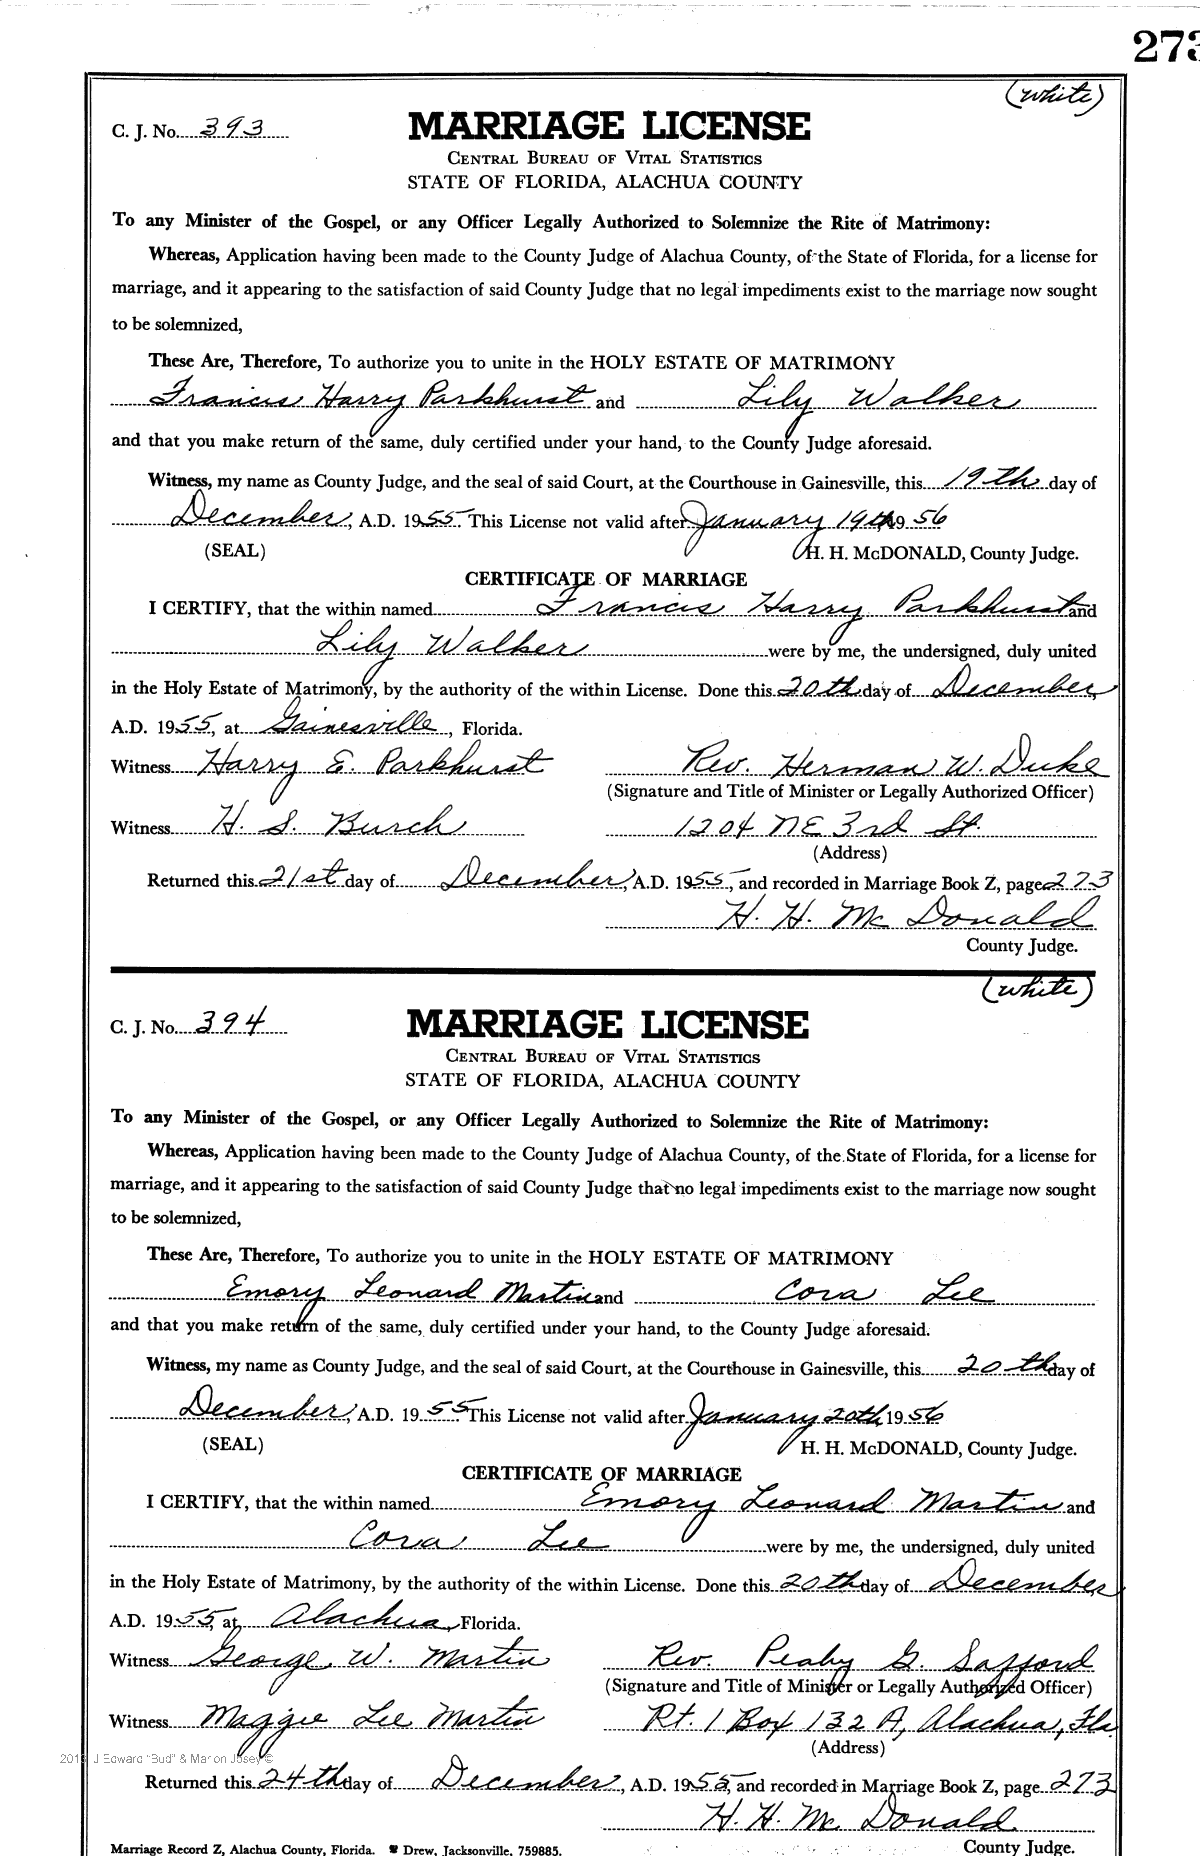 273
(white)
C. J. No. 393 MARRIAGE LICENSE
CENTRAL BUREAU OF VITAL STATISTICS
STATE OF FLORIDA, ALACHUA COUNTY
To any Minister of the Gospel, or any Officer Legally Authorized to Solemnize the Rite of Matrimony:
Whereas, Application having been made to the County Judge of Alachua County, of the State of Florida, for a license for
marriage, and it appearing to the satisfaction of said County Judge that no legal impediments exist to the marriage now sought
to be solemnized,
These Are, Therefore, To authorize you to unite in the HOLY ESTATE OF MATRIMONY
Francis Harry Parkhurst and Lily Walker
and that you make return of the same, duly certified under your hand, to the County Judge aforesaid.
Witness, my name as County Judge, and the seal of said Court, at the Courthouse in Gainesville, this 19th day of
December, A.D. 1955. This License not valid after January 19th 1956
(SEAL) H. H. McDONALD, County Judge.
CERTIFICATE OF MARRIAGE
I CERTIFY, that the within named Francis Harry Parkhurst and
Lily Walker were by me, the undersigned, duly united
in the Holy Estate of Matrimony, by the authority of the within License. Done this 20th day of December,
A.D. 1955, at Gainesville, Florida.
Witness Harry E. Parkhurst Rev. Herman W. Duke
(Signature and Title of Minister or Legally Authorized Officer)
Witness H. S. Burch 1204 NE 3rd St.
(Address)
Returned this 21st day of December, A.D. 1955, and recorded in Marriage Book Z, page 273
H. H. McDonald
County Judge.
(white)
C. J. No. 394 MARRIAGE LICENSE
CENTRAL BUREAU OF VITAL STATISTICS
STATE OF FLORIDA, ALACHUA COUNTY
To any Minister of the Gospel, or any Officer Legally Authorized to Solemnize the Rite of Matrimony:
Whereas, Application having been made to the County Judge of Alachua County, of the State of Florida, for a license for
marriage, and it appearing to the satisfaction of said County Judge that no legal impediments exist to the marriage now sought
to be solemnized,
These Are, Therefore, To authorize you to unite in the HOLY ESTATE OF MATRIMONY
Emory Leonard Martin and Cora Lee
and that you make return of the same, duly certified under your hand, to the County Judge aforesaid.
Witness, my name as County Judge, and the seal of said Court, at the Courthouse in Gainesville, this 20th day of
December, A.D. 1955. This License not valid after January 20th, 1956
(SEAL) H. H. McDONALD, County Judge.
CERTIFICATE OF MARRIAGE
I CERTIFY, that the within named Emory Leonard Martin and
Cora Lee were by me, the undersigned, duly united
in the Holy Estate of Matrimony, by the authority of the within License. Done this 20th day of December,
A.D. 1955, at Alachua, Florida.
Witness George W. Martin Rev. Peaby G. Safford
(Signature and Title of Minister or Legally Authorized Officer)
Witness Maggie Lee Martin Rt. 1 Box 132 A, Alachua, Fla.
(Address)
J Edward "Bud" & Marion Josey ©
Returned this 24th day of December, A.D. 1955, and recorded in Marriage Book Z, page 273
H. H. McDonald
County Judge.
Marriage Record Z, Alachua County, Florida. Drew, Jacksonville, 759885.